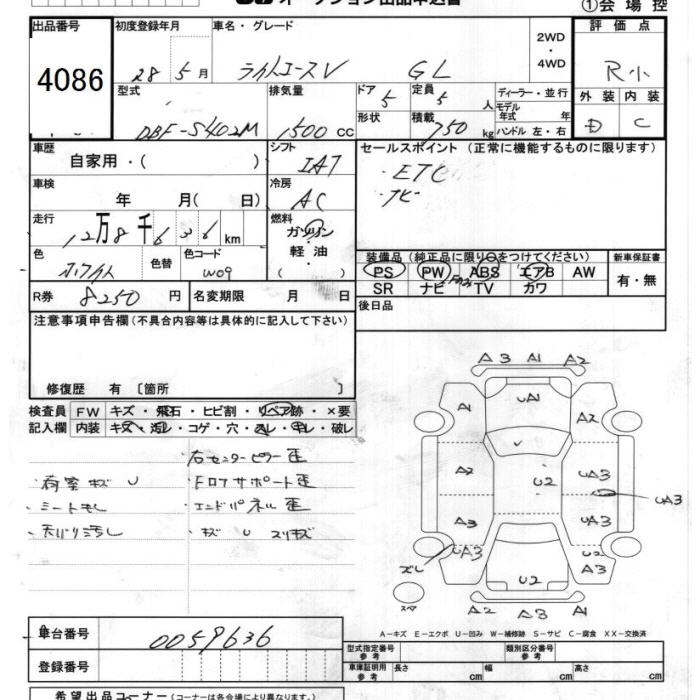 ①会場控
出品番号 初度登録年月 車名・グレード 2WD・4WD 評価点
4086 28年5月 ライトエースV GL R小
型式 排気量 ドア 定員 ディーラー・並行 外装 内装
DBF-S402M 1500cc 5 5人 モデル年式 年 D C
形状 積載 750kg ハンドル 左・右
車歴 自家用・( ) シフト IAT セールスポイント (正常に機能するものに限ります)
・ETC
車検 年 月( 日) 冷房 AC ・ナビ
走行 12万8千636km 燃料 ガソリン・軽油・( )
色 ホワイト 色替 色コード W09
装備品(純正品に限り○をつけてください) 新車保証書
PS PW ABS エアB AW 有・無
SR ナビ TV カワ
R券 8250円 名変期限 月 日 後日品
注意事項申告欄(不具合内容等は具体的に記入して下さい)
修復歴 有 〔箇所 〕
検査員 FW キズ・飛石・ヒビ割・リペア跡・×要
記入欄 内装 キズ・汚レ・コゲ・穴・スレ・キレ・破レ
・右センターピラー歪
・荷室キズU ・フロアサポート歪
・シートもし ・エンドパネル歪
・天バリ汚し ・キズ U スリキズ
A3 A1 A2
A1 UA1 A2
A2 U2 UA3 UA3
A3 UA3
ズレ UA3 U2 A3
スペア U2
A2 A3 A1
A-キズ E-エクボ U-凹み W-補修跡 S-サビ C-腐食 XX-交換済
車台番号 0059636
型式指定番号 参考 類別区分番号 参考
登録番号 車庫証明用 参考 長さ cm 幅 cm 高さ cm
希望出品コーナー(コーナーは各会場により異なります。)